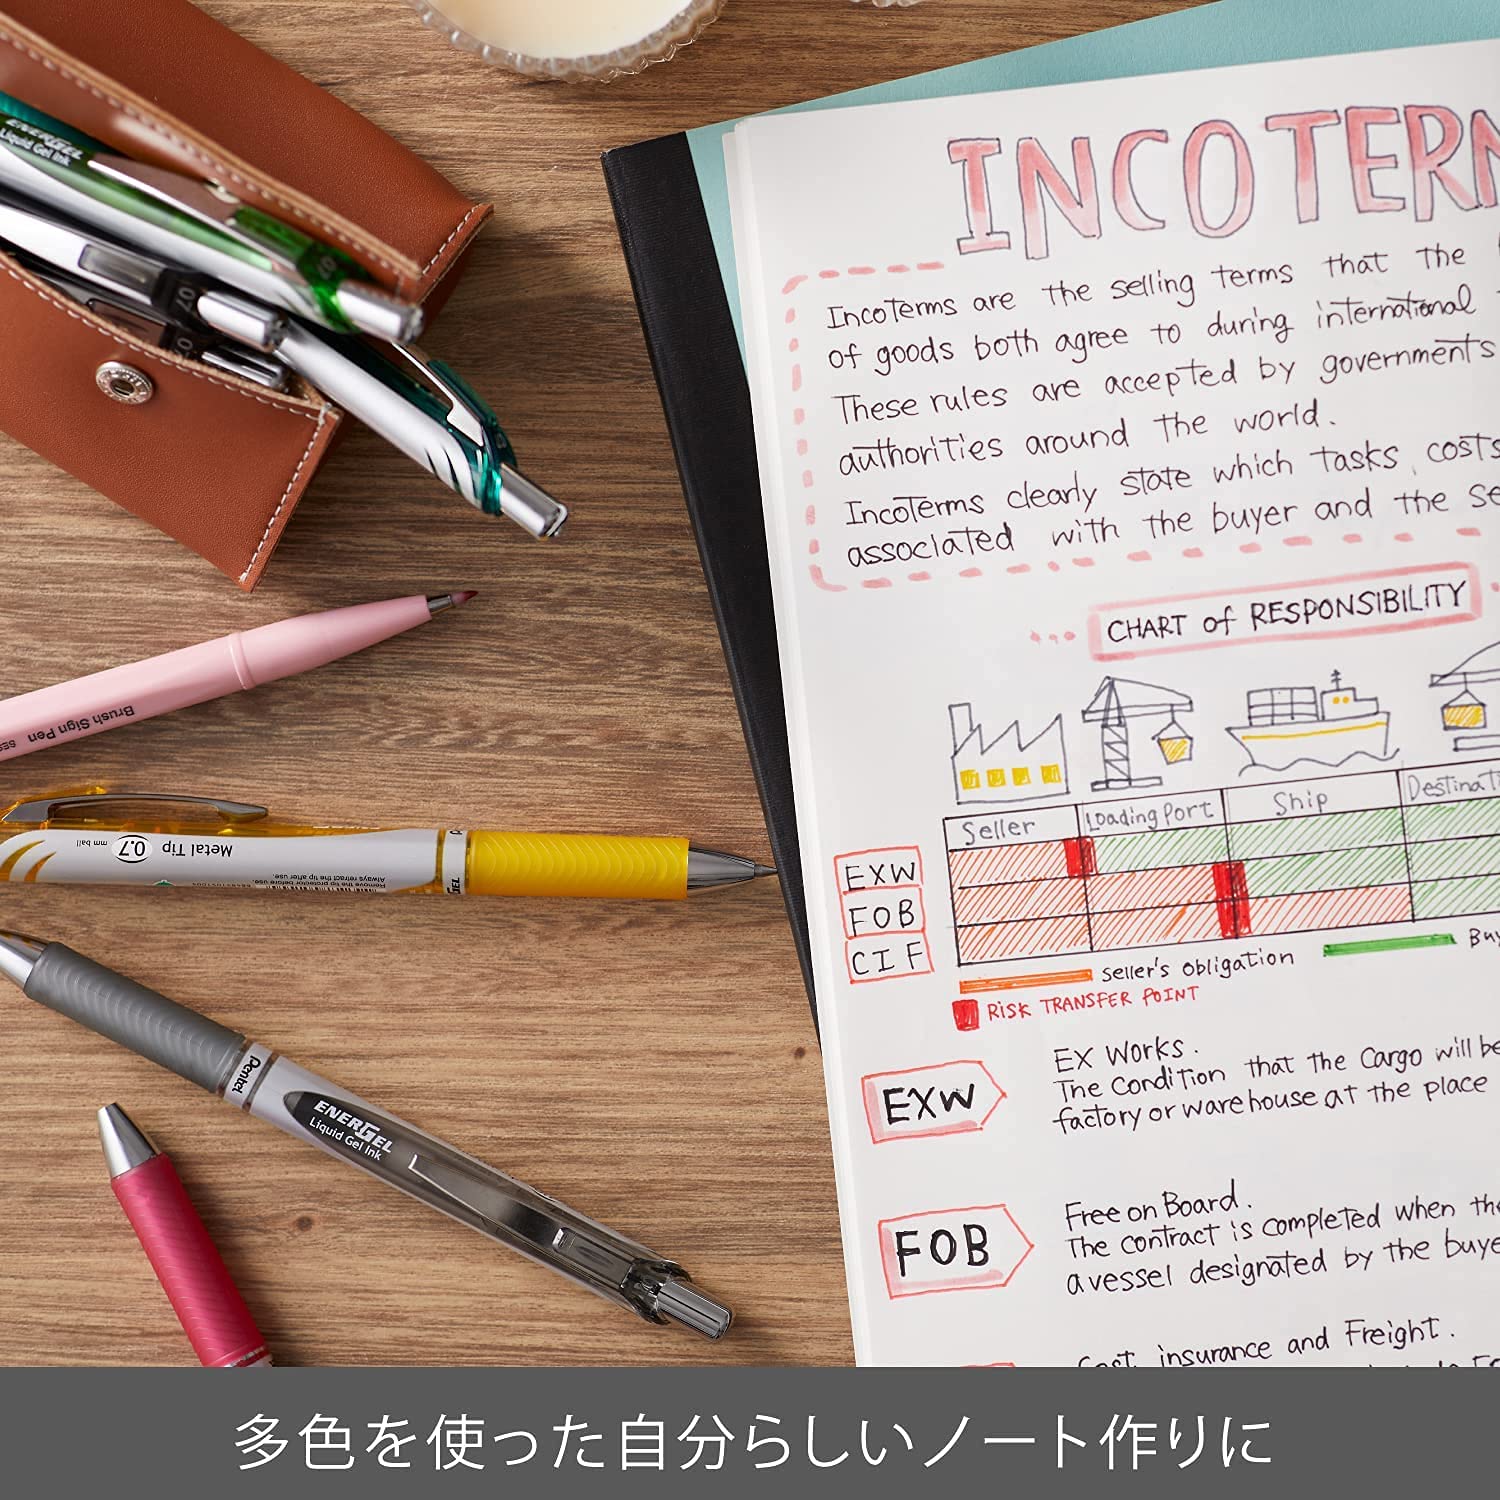 INCOTERM
Incoterms are the selling terms that the
of goods both agree to during international
These rules are accepted by governments
authorities around the world.
Incoterms clearly state which tasks, costs
associated with the buyer and the se
CHART of RESPONSIBILITY
Seller Loading Port Ship Destinati
EXW
FOB
CIF
seller's obligation Buy
RISK TRANSFER POINT
EXW
EX Works.
The Condition that the Cargo will be
factory or warehouse at the place
FOB
Free on Board.
The contract is completed when the
a vessel designated by the buye
Cost, insurance and Freight.
ENERGEL
Liquid Gel Ink
07
07
Brush Sign Pen
Metal Tip 0.7 mm ball
Remove the tip protector before use.
Always retract the tip after use.
GEL
Pentel
ENERGEL
Liquid Gel Ink
多色を使った自分らしいノート作りに